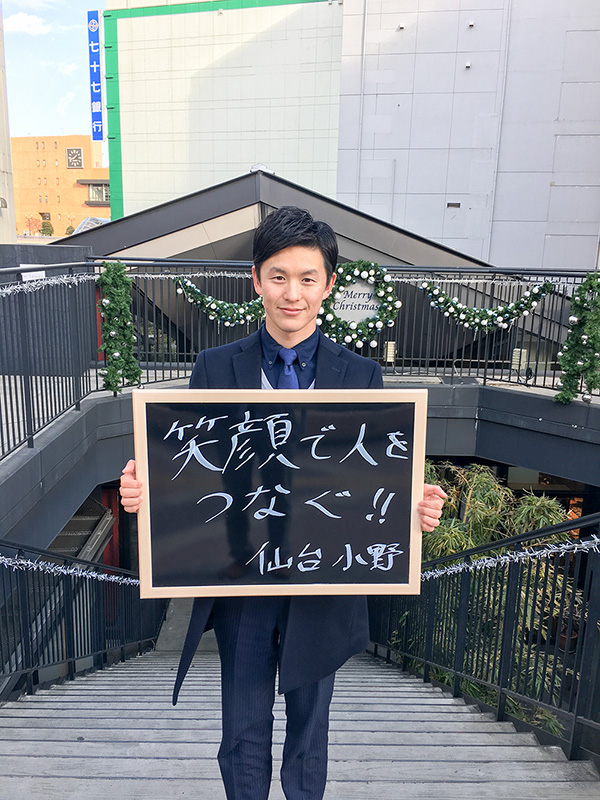 七十七銀行
Merry
Christmas
笑顔で人を
つなぐ!!
仙台 小野